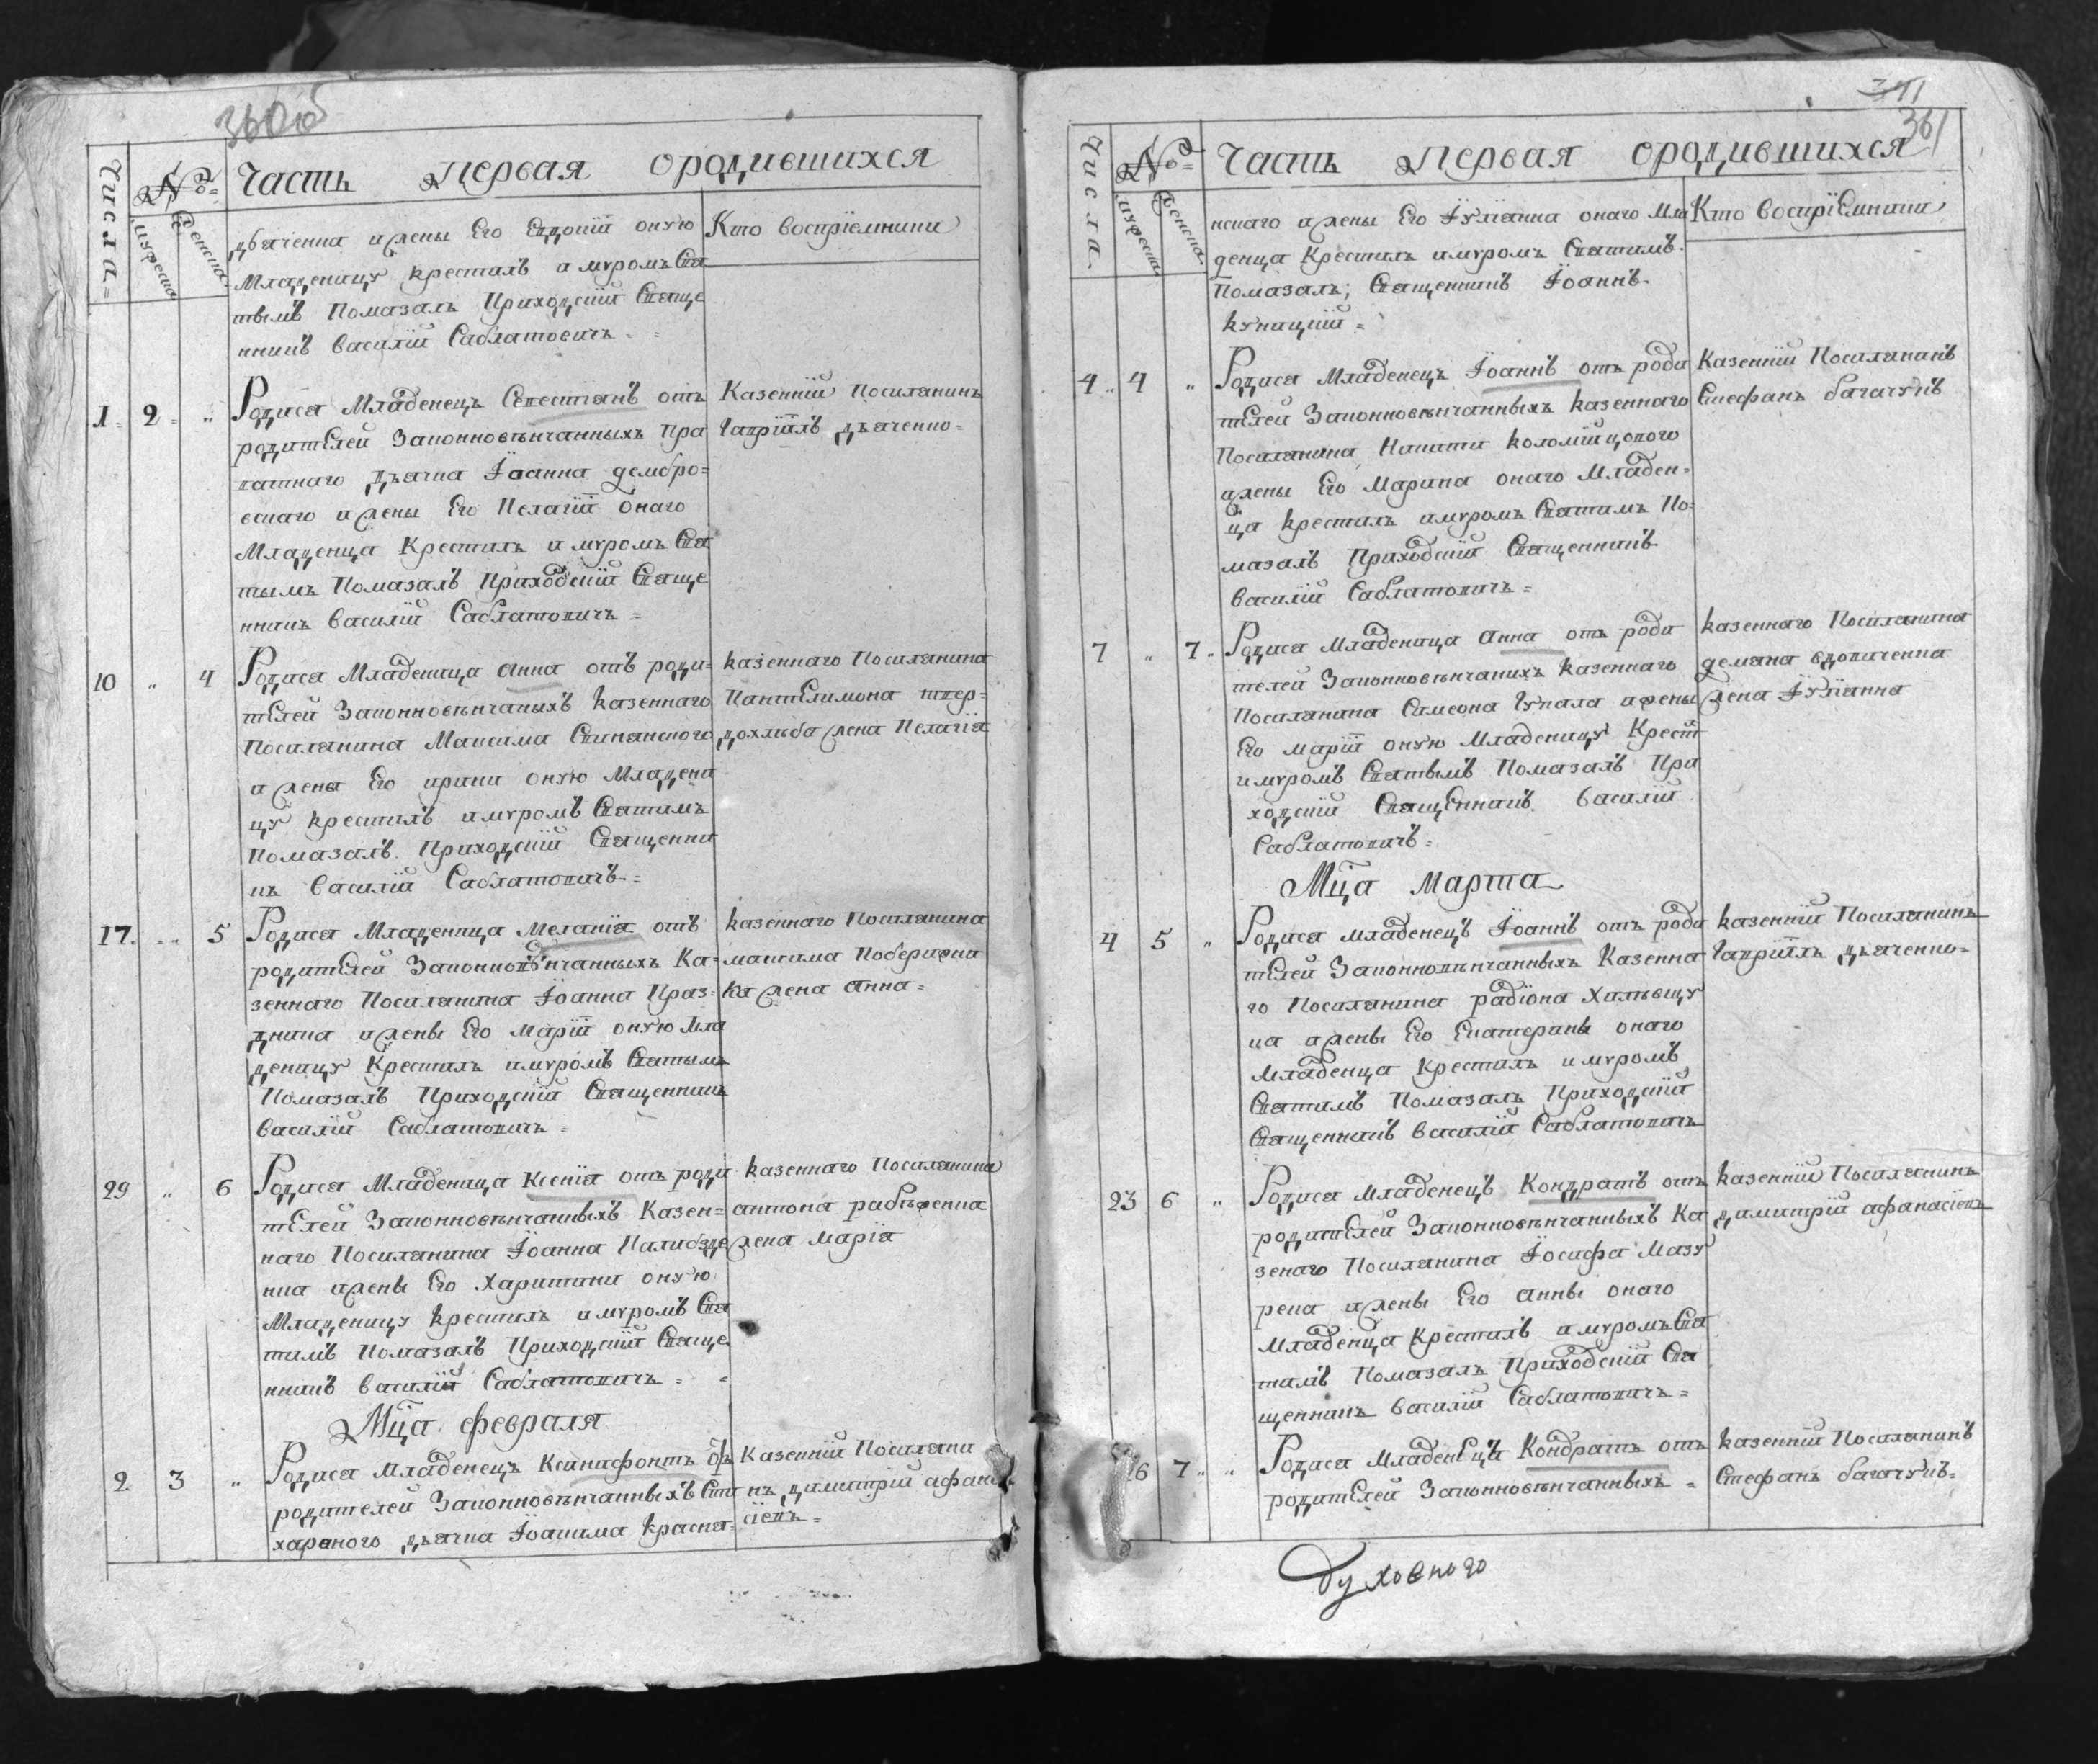 360об
Числа
№
мужеска
женска
Часть Первая ородившихся
Кто воспріемники
дяченка и жены Его Евдокіи оную
Младеницу крестилъ и муромъ Свя
тымъ Помазалъ Приходскій Свяще
нникъ василій Саблатовичъ
1 2 „
Родися Младенецъ Севестіанъ отъ
родителей Законновѣнчанныхъ Пра
ватнаго дьячка Іоанна дембро=
вскаго и жены Его Пелагіи онаго
Младенца Крестилъ и муромъ Свя
тымъ Помазалъ Приходскій Свяще
нникъ василій Саблатовичъ =
Казенній Поселянинъ
Гавріилъ дьяченко=
10 „ 4
Родися Младеница Анна отъ роди=
телей Законновѣнчаныхъ казеннаго
Поселянина Максима
и жены Его ирини оную Младени
цу крестилъ и муромъ Святимъ
Помазалъ Приходскій Священни
къ василій Саблатовичъ=
казеннаго Поселянина
Пантелимона твер=
дохлѣба жена Пелагія
17 „ 5
Родися Младеница Меланія отъ
родителей Законновѣнчанныхъ Ка=
зеннаго Поселянина Іоанна Праз=
дника и жены Его Маріи оную Мла
деницу Крестилъ и муромъ Святымъ
Помазалъ Приходскій Священникъ
василій Саблатовичъ =
казеннаго Поселянина
максима Побережни
ка жена Анна=
29 „ 6
Родися Младеница Ксенія отъ роди
телей Законновѣнчанныхъ Казен=
наго Поселянина Іоанна
нка и жены Его Харитини оную
Младеницу крестилъ и муромъ Свя
тимъ Помазалъ Приходскій Свяще
нникъ василій Саблатовичъ =
казеннаго Поселянина
антона
жена марія
Мца февраля
2 3 „
Родися Младенецъ Ксинофонтъ отъ
родителей Законновѣнчанныхъ Сти
харного дьячка Іоакима красня=
Казенній Поселяни
нъ димитрій афана
сіевъ=
371
361
Числа
№
мужеска
женска
Часть Первая ородившихся
Кто воспріемники
нскаго и жены Его Іуліанна онаго Мла
денца Крестилъ и муромъ Святимъ
Помазалъ; Священникъ Іоаннъ
куницкій =
4 4 „
Родися Младенецъ Іоаннъ отъ роди
телей Законновѣнчанныхъ казеннаго
Поселянина Никити коломійцового
и жены Его Марина онаго Младен=
ца крестилъ и муромъ Святимъ По=
мазалъ Приходскій Священникъ
василій Саблатовичъ =
Казенній Поселянинъ
Стефанъ багачукъ
7 „ 7
Родися Младеница Анна отъ роди
телей Законновѣнчанихъ казеннаго
Поселянина Симеона Чупала и жены
Его маріи оную Младеницу Крестй
и муромъ Святымъ Помазалъ При
ходскій Священникъ василій
Саблатовичъ =
казеннаго Поселянина
демяна вдовиченка
жена Іуліанна
Мца Марта
4 5 „
Родися младенецъ Іоаннъ отъ роди
телей Законновѣнчанныхъ Казенна
го Поселянина радіона
ка и жены Его Екатерины онаго
Младенца Крестилъ и муромъ
Святимъ Помазалъ Приходскій
Священникъ василій Саблатовичъ
казенній Поселянинъ
Гавріилъ дьяченко=
23 6 „
Родися младенецъ Кондратъ отъ
родителей Законновѣнчанныхъ Ка
зенаго Поселянина Іосифа Мазу
река и жены Его Анны онаго
Младенца Крестилъ и муромъ Свя
тимъ Помазалъ Приходскій Свя
щенникъ василій Саблатовичъ =
казенній Поселянинъ
димитрій афанасіевъ
6 7 „
Родися Младенецъ Кондратъ отъ
родителей Законновѣнчанныхъ =
казенній Поселянинъ
Стефанъ багачукъ=
Духовного